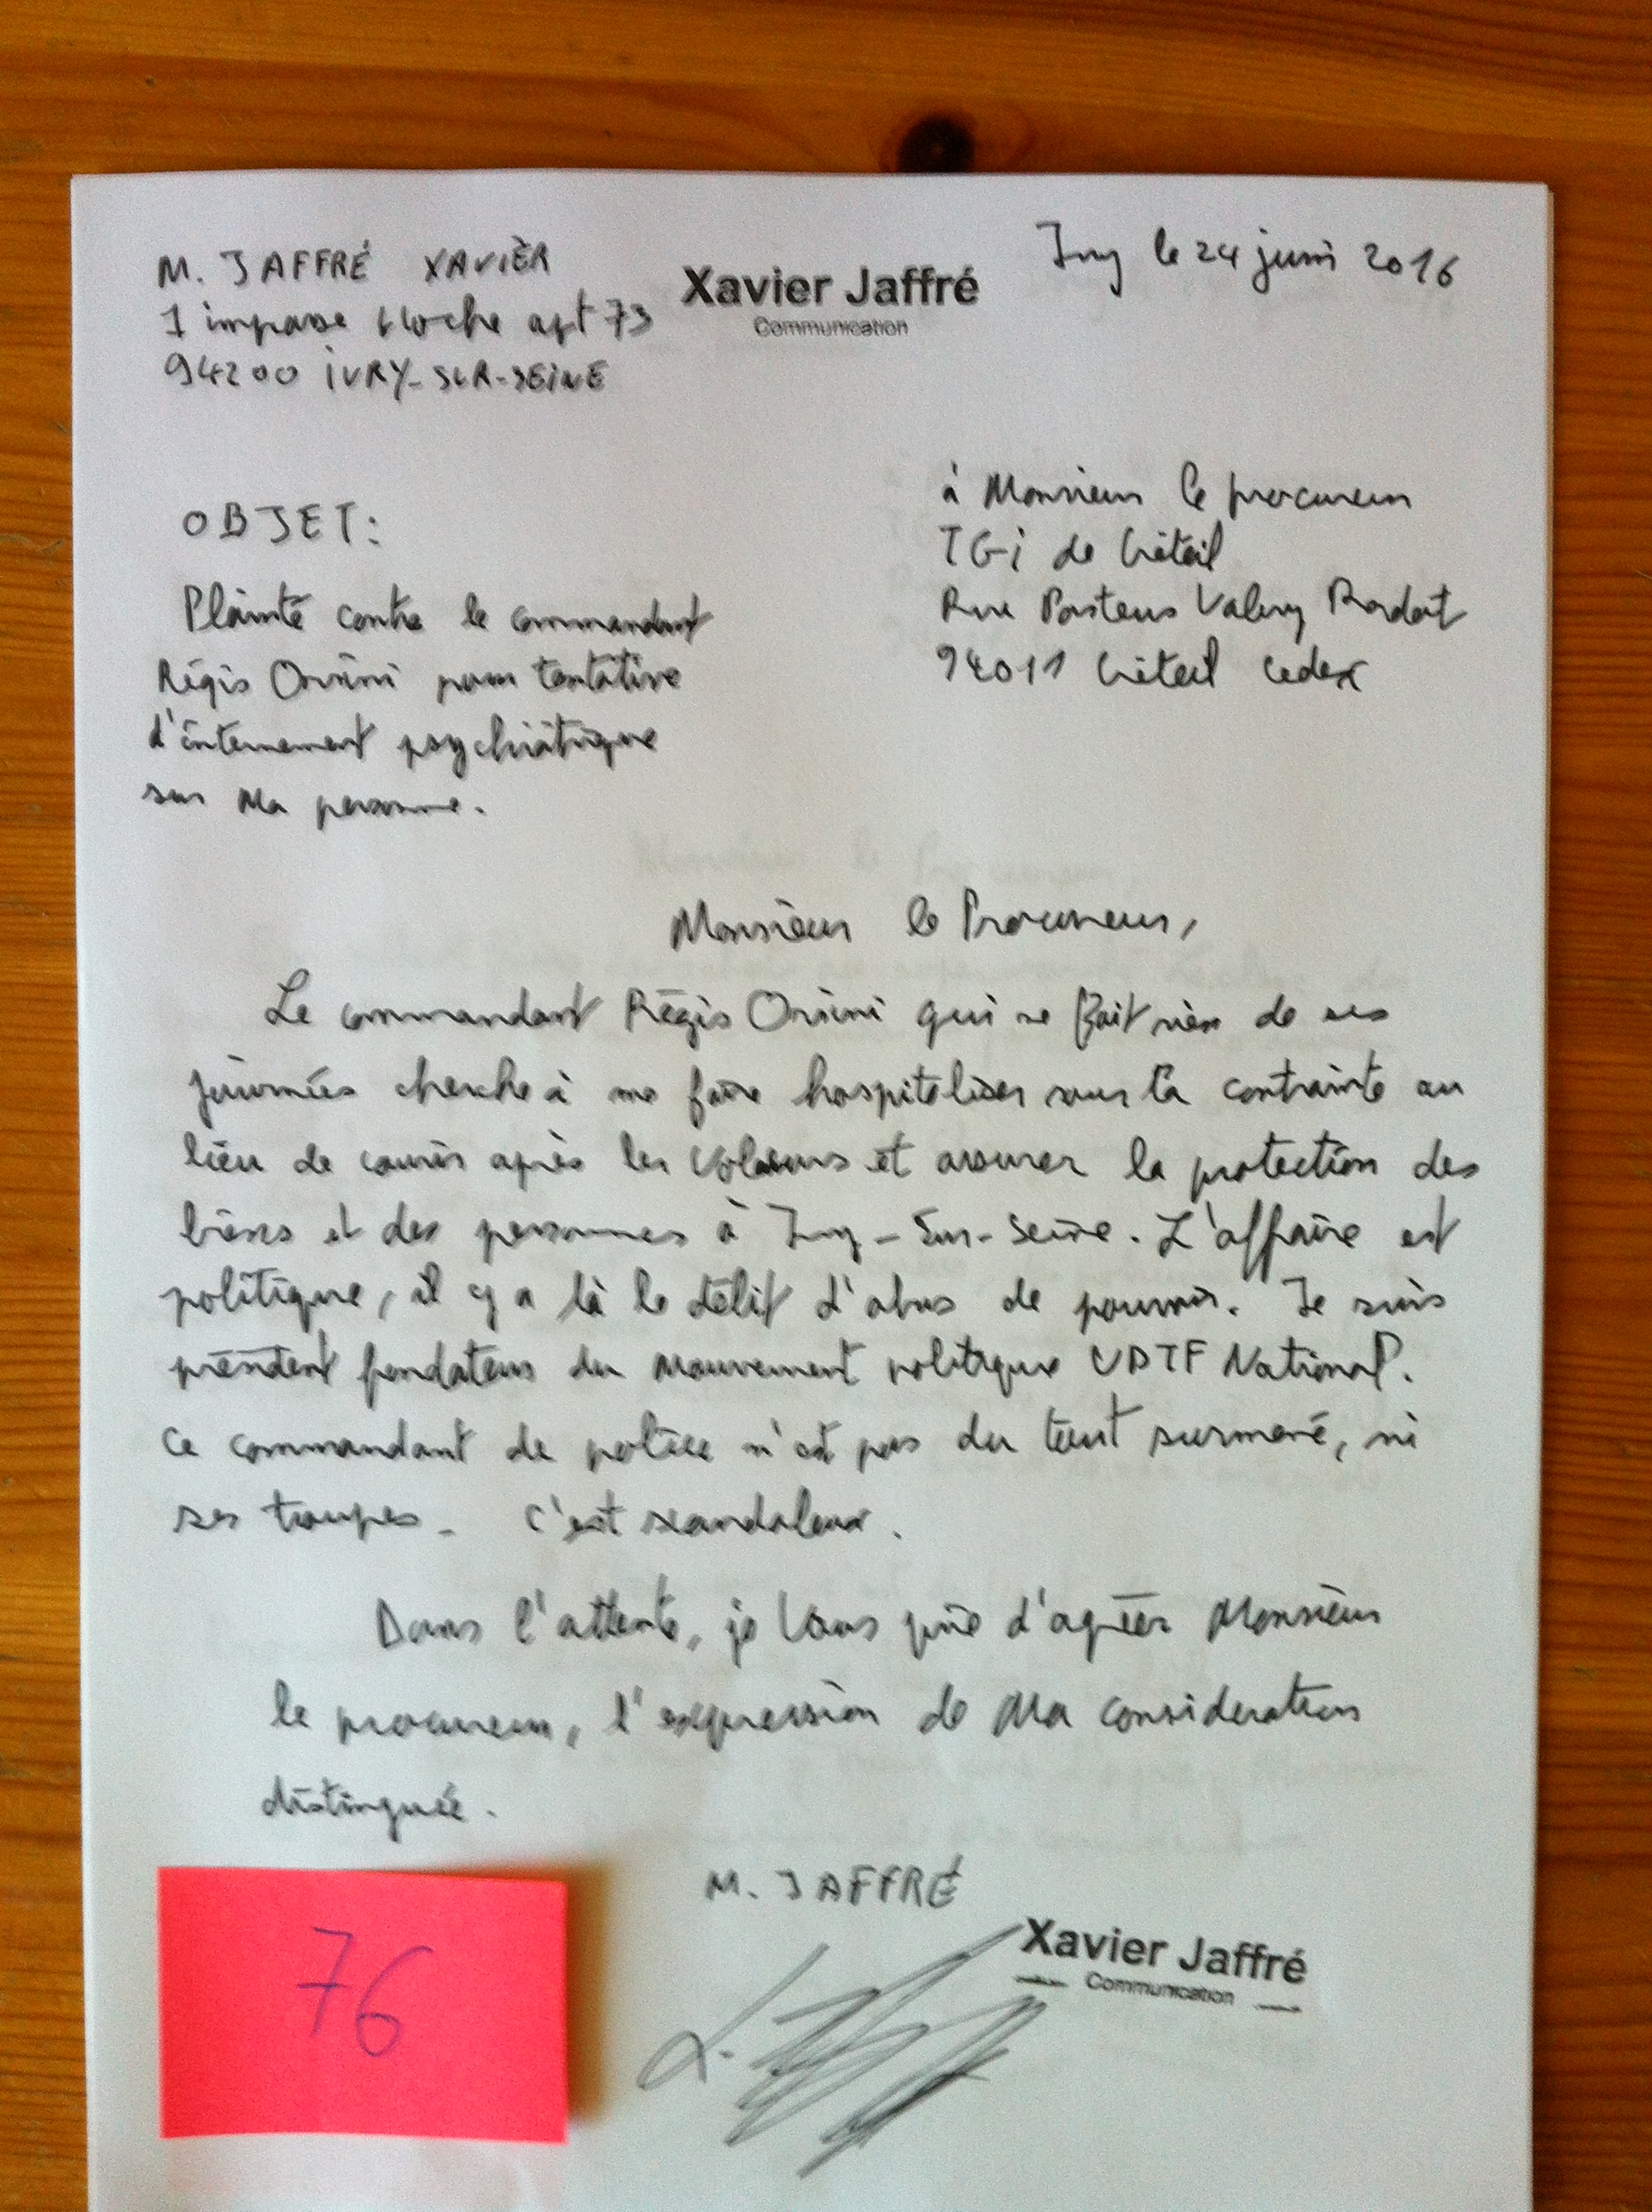 M. JAFFRÉ XAVIER
1 impasse apt 73
94200 IVRY-SUR-SEINE
Xavier Jaffré
Communication
Ivry le 24 juin 2016
à Monsieur le procureur
TGI de Créteil
Rue Pasteur Valery Radot
94011 Créteil cedex
OBJET:
Plainte contre le commandant
Régis Orsini pour tentative
d'internement psychiatrique
sur Ma personne.
Monsieur le Procureur,
Le commandant Régis Orsini qui ne fait rien de ses
journées cherche à me faire hospitaliser sous la contrainte au
lieu de courir après les voleurs et assurer la protection des
biens et des personnes à Ivry-Sur-Seine. L'affaire est
politique, il y a là le délit d'abus de pouvoir. Je suis
président fondateur du Mouvement politique UDTF National.
Ce commandant de police n'est pas du tout surmené, ni
ses troupes. C'est scandaleux.
Dans l'attente, je Vous prie d'agréer Monsieur
le procureur, l'expression de Ma considération
distinguée.
M. JAFFRÉ
Xavier Jaffré
Communication
76